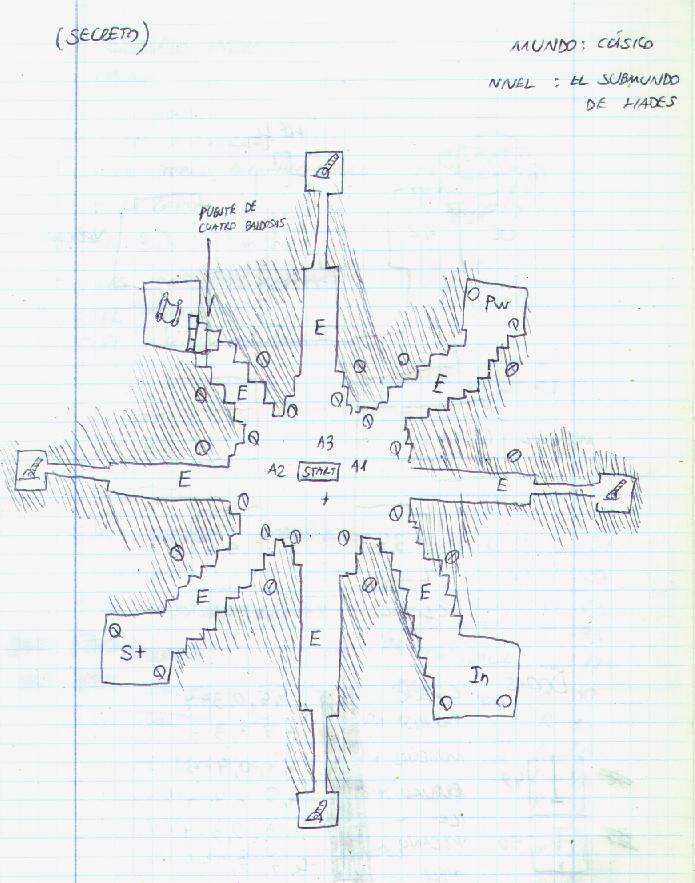 (SECRETO)
MUNDO: CLÁSICO
NIVEL : EL SUBMUNDO
DE HADES
PUENTE DE
CUATRO BALDOSAS
Pw
E
E
E
A3
A2
START
A1
E
E
E
E
E
St
In